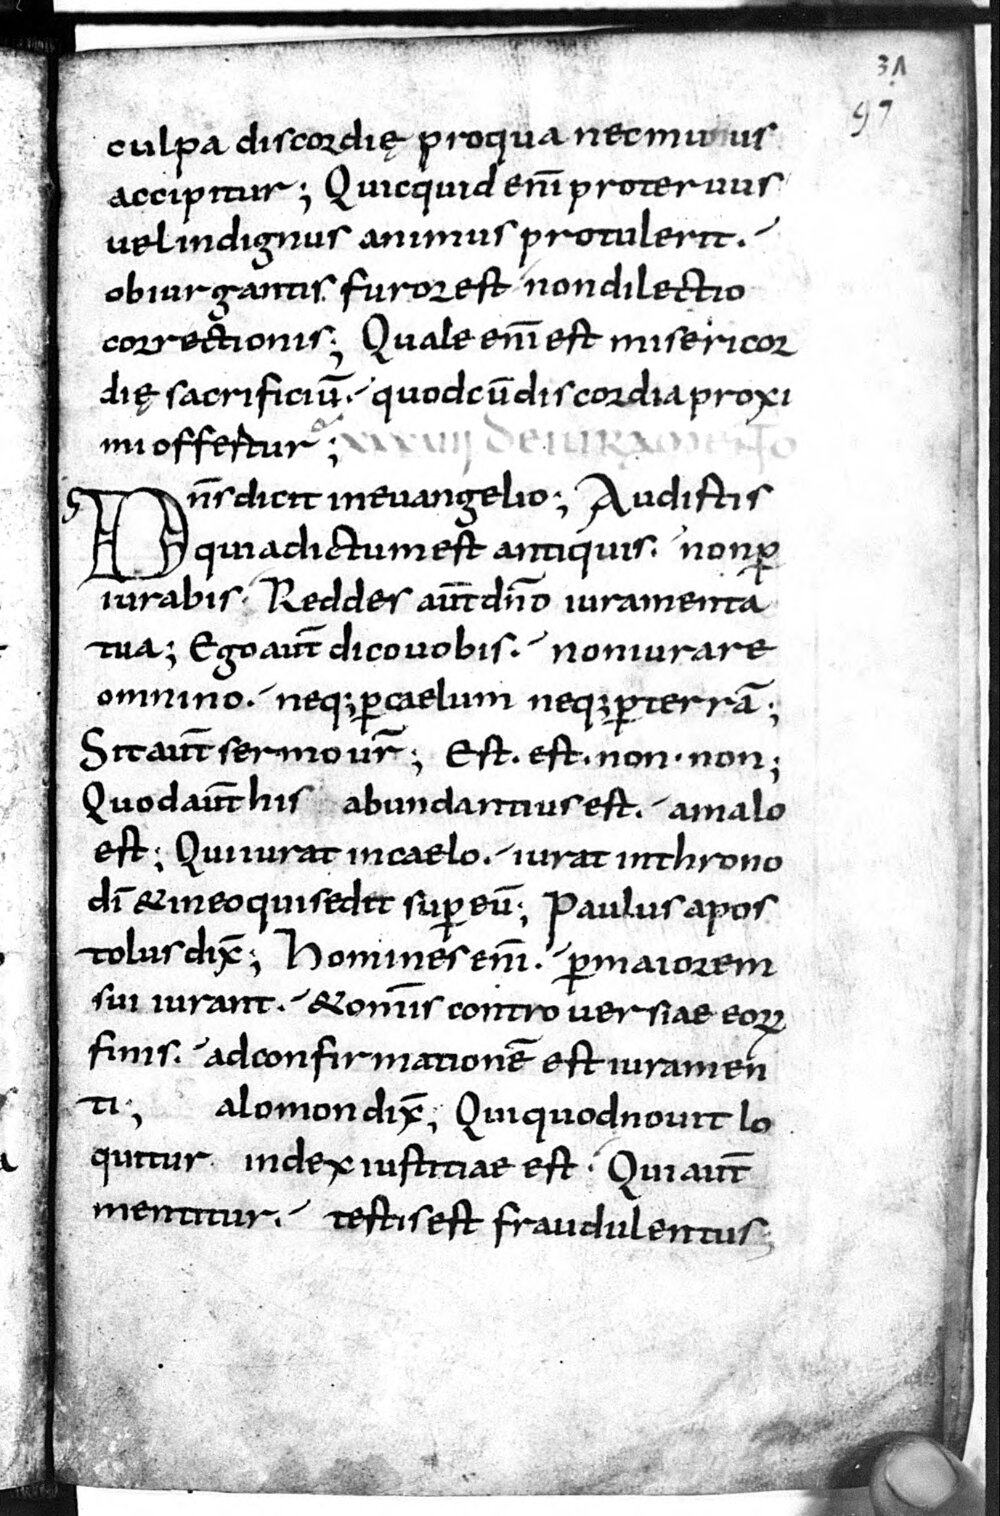 31
97
culpa discordię proqua nec munus
accipitur; Quicquid enī proteruus
uel indignus animus protulerit.
obiurgantis furor est non dilectio
correctionis; Quale enī est misericor
dię sacrificiū. quod cū discordia proxi
mi offertur; xxxuiij de iuramento
Dn̄s dicit in euangelio; Audistis
quia dictum est antiquis. non ꝑ
iurabis. Reddes aūt dn̄o iuramenta
tua; Ego aūt dico uobis. non iurare
omnino. neq; ꝑ caelum neq; ꝑ terrā;
Sit aūt sermo ur̄; Est. est. non. non;
Quod aūt his abundantius est. a malo
est; Qui iurat in caelo. iurat in throno
dī & in eo qui sedit suꝑ eū; Paulus apos
tolus dix̄; Homines enī. ꝑ maiorem
sui iurant. & om̄is controuersiae eoꝝ
finis. ad confirmationē est iuramen
ti; alomon dix̄; Qui quod nouit lo
quitur index iustitiae est. Qui aūt
mentitur. testis est fraudulentus;